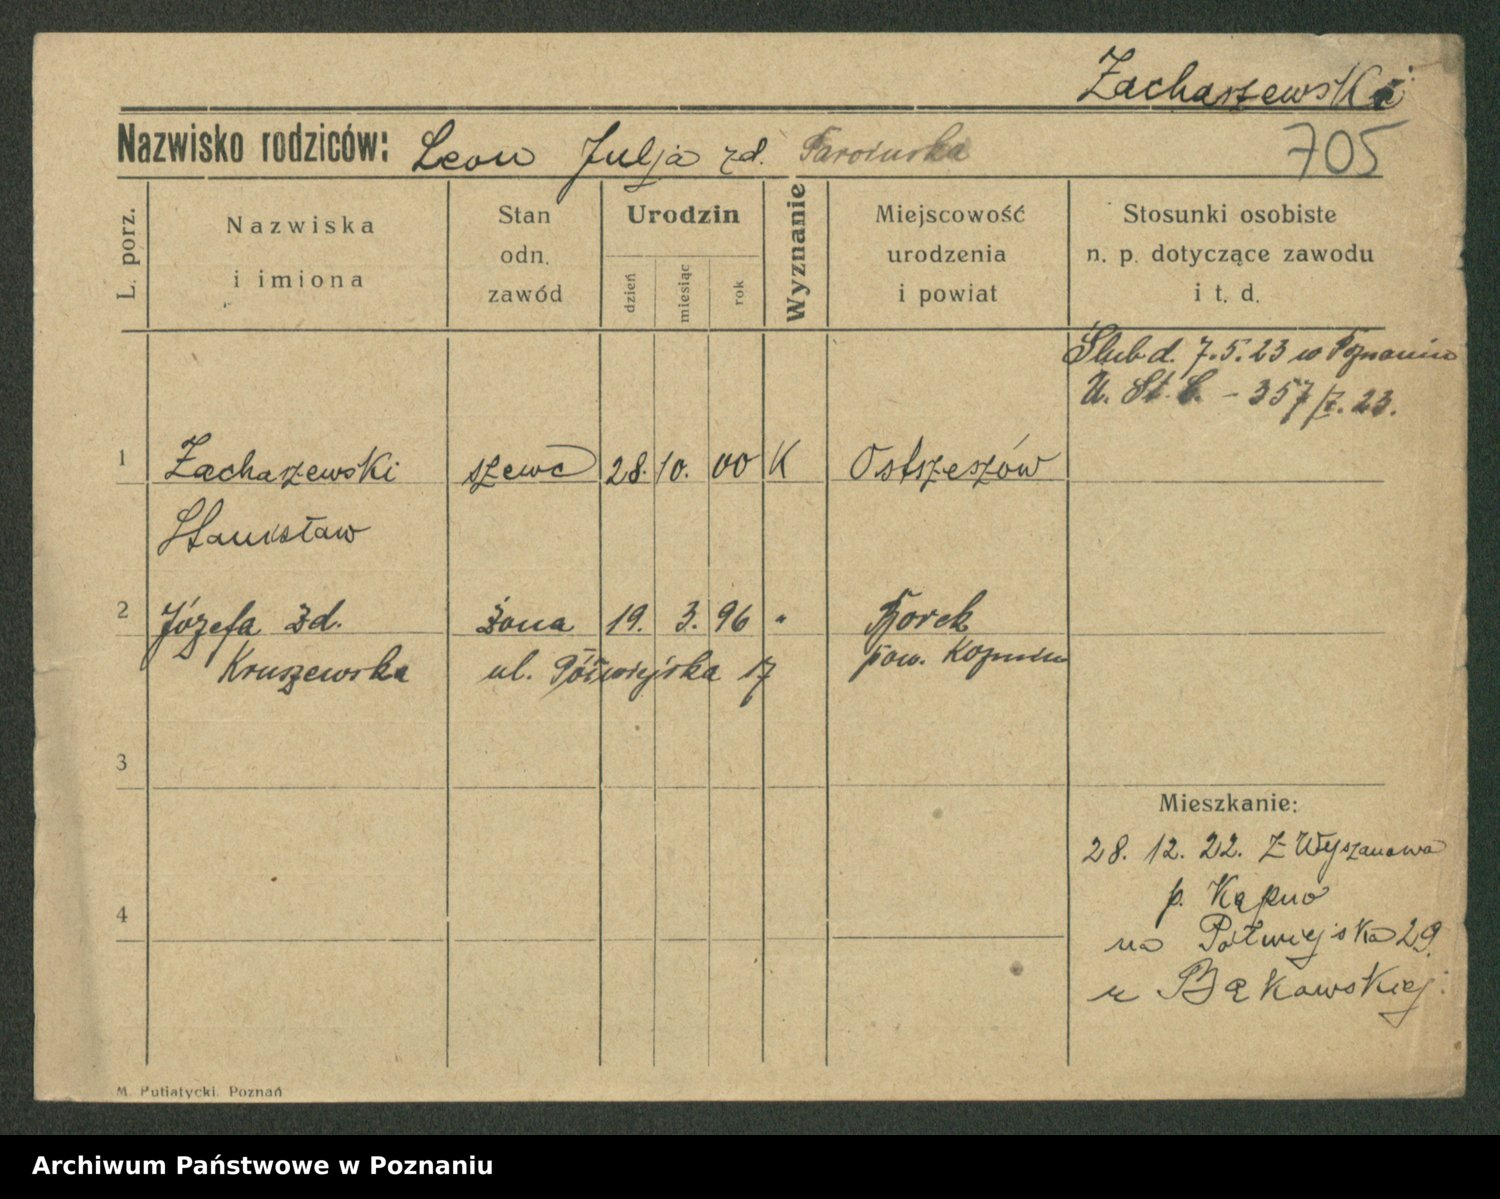 Zachaszewski
Nazwisko rodziców: Leon Julja zd.
705
L. porz.
Nazwiska
i imiona
Stan
odn.
zawód
Urodzin
dzień
miesiąc
rok
Wyznanie
Miejscowość
urodzenia
i powiat
Stosunki osobiste
n. p. dotyczące zawodu
i t. d.
Ślub d. 7.5.23 w Poznaniu
U. St. C. - 357/I. 23.
1 Zachaszewski szewc 28. 10. 00 K Ostszeszów
Stanisław
2 Józefa zd. żona 19. 3. 96 " Borek
Kruszewska ul. Półwiejska 17 pow. Kozmin
3
Mieszkanie:
28. 12. 22. Z Wyszanowa
p. Kępno
4
na Półwiejska 29
u Bąkowskiej
M. Putiatycki, Poznań
Archiwum Państwowe w Poznaniu